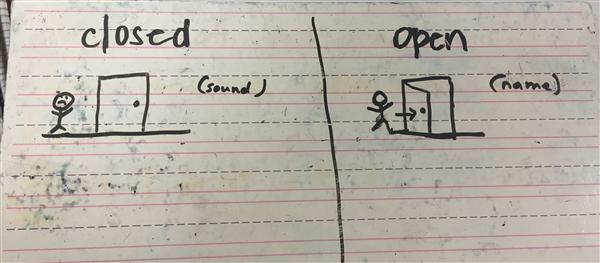 closed
(sound)
open
(name)